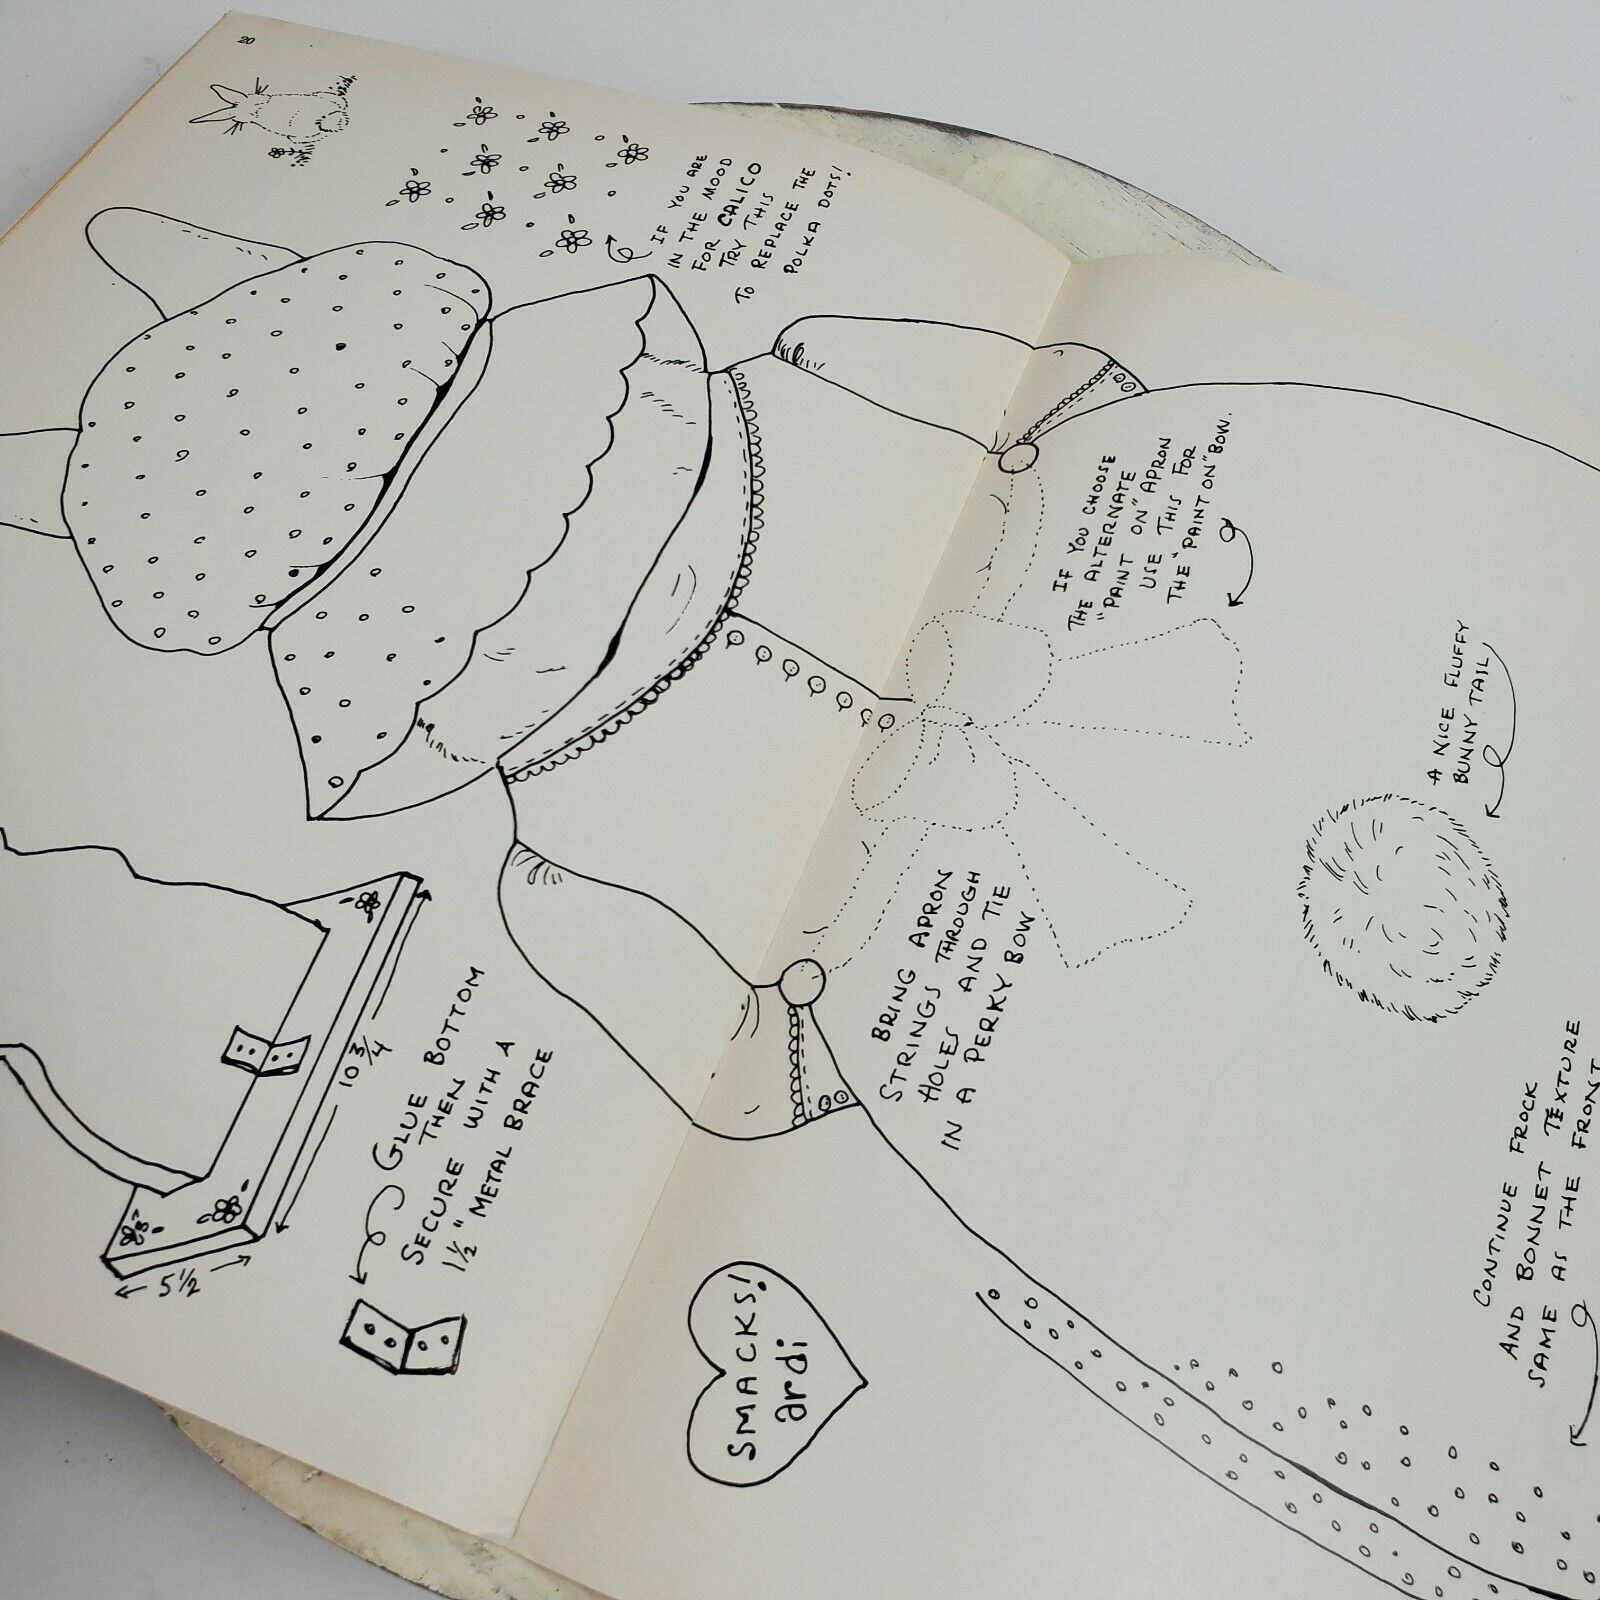 20
IF YOU ARE
IN THE MOOD
FOR CALICO
TRY THIS
TO REPLACE THE
POLKA DOTS!
IF YOU CHOOSE
THE ALTERNATE
"PAINT ON" APRON
USE THIS FOR
THE "PAINT ON" BOW.
A NICE FLUFFY
BUNNY TAIL
BRING APRON
STRINGS THROUGH
HOLES AND TIE
IN A PERKY BOW
CONTINUE FROCK
AND BONNET TEXTURE
SAME AS THE FRONT
10 3/4
5 1/2
GLUE BOTTOM
THEN
SECURE WITH A
1½" METAL BRACE
SMACKS!
ardi